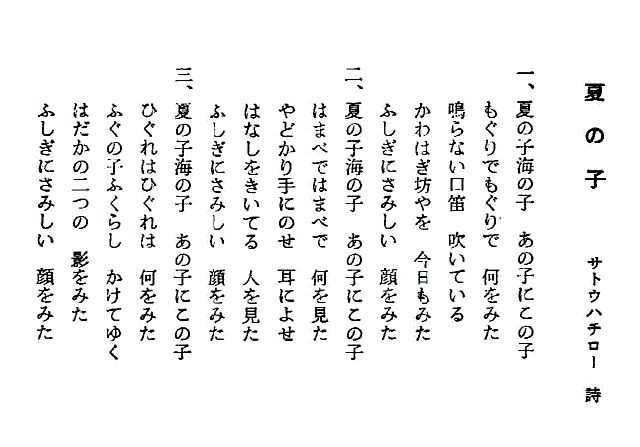 夏の子
サトウハチロー 詩
一、夏の子海の子 あの子にこの子
もぐりでもぐりで 何をみた
鳴らない口笛 吹いている
かわはぎ坊やを 今日もみた
ふしぎにさみしい 顔をみた
二、夏の子海の子 あの子にこの子
はまべではまべで 何を見た
やどかり手にのせ 耳によせ
はなしをきいてる 人を見た
ふしぎにさみしい 顔をみた
三、夏の子海の子 あの子にこの子
ひぐれはひぐれは 何をみた
ふぐの子ふくらし かけてゆく
はだかの二つの 影をみた
ふしぎにさみしい 顔をみた